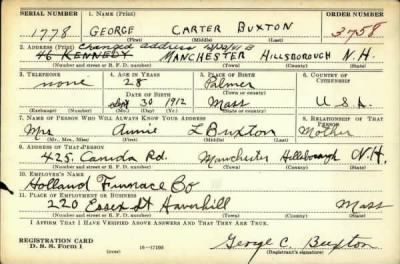 SERIAL NUMBER 1. NAME (Print) ORDER NUMBER
1778 GEORGE CARTER BUXTON 3758
(First) (Middle) (Last)
2. ADDRESS (Print) Changed address
46 KENNEDY MANCHESTER HILLSBOROUGH N.H.
(Number and street or R. F. D. number) (Town) (County) (State)
3. TELEPHONE 4. AGE IN YEARS 5. PLACE OF BIRTH 6. COUNTRY OF CITIZENSHIP
none 28 Palmer
DATE OF BIRTH (Town or county)
30 1912 Mass U.S.A.
(Exchange) (Number) (Mo.) (Day) (Yr.) (State or country)
7. NAME OF PERSON WHO WILL ALWAYS KNOW YOUR ADDRESS 8. RELATIONSHIP OF THAT PERSON
Mrs Annie L Buxton Mother
(Mr., Mrs., Miss) (First) (Middle) (Last)
9. ADDRESS OF THAT PERSON
425 Canada Rd. Manchester Hillsborough N.H.
(Number and street or R. F. D. number) (Town) (County) (State)
10. EMPLOYER'S NAME
Holland Furnace Co
11. PLACE OF EMPLOYMENT OR BUSINESS
220 Essex St Haverhill Mass
(Number and street or R. F. D. number) (Town) (County) (State)
I AFFIRM THAT I HAVE VERIFIED ABOVE ANSWERS AND THAT THEY ARE TRUE.
REGISTRATION CARD George C. Buxton
D. S. S. Form 1 16—17105 (Registrant's signature)